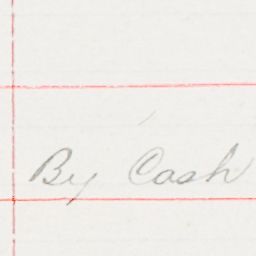 By Cash